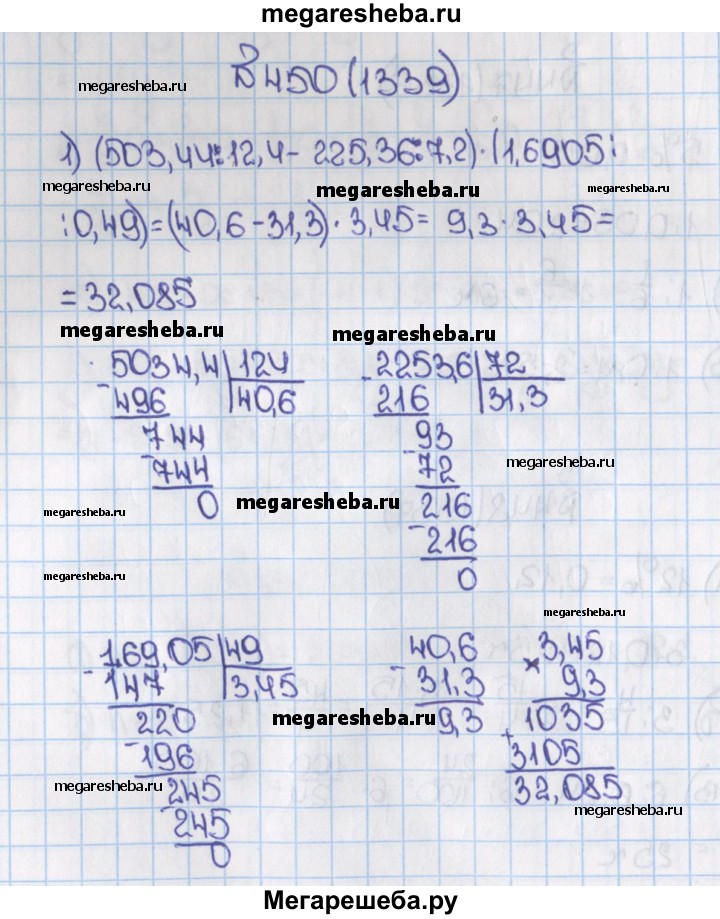 megaresheba.ru
В 450 (1339)
megaresheba.ru megaresheba.ru
1) (503,44:12,4 - 225,36:7,2)·(1,6905:
megaresheba.ru megaresheba.ru megaresheba.ru
:0,49) = (40,6 - 31,3) · 3,45 = 9,3 · 3,45 =
= 32,085
megaresheba.ru megaresheba.ru
5034,4 | 124
- 496 | 40,6
744
- 744
0
2253,6 | 72
- 216 | 31,3
93
- 72
216
- 216
0
megaresheba.ru
megaresheba.ru megaresheba.ru
megaresheba.ru
megaresheba.ru
169,05 | 49
- 147 | 3,45
220
- 196
245
245
0
40,6
- 31,3
9,3
3,45
× 9,3
1035
+ 3105
32,085
megaresheba.ru
megaresheba.ru
megaresheba.ru
Мегарешеба.ру